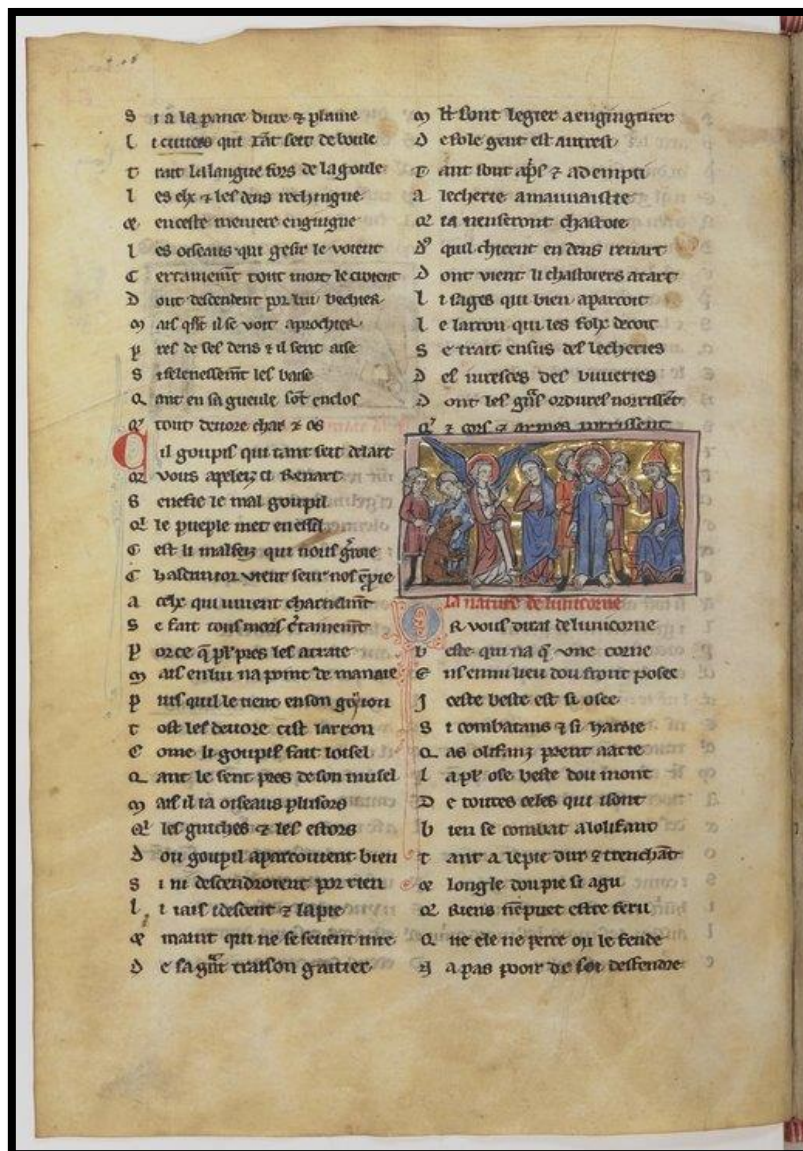 S i a la pance dure ⁊ plaine
L i cuiters qui tāt seit de boule
T rait la langue fors de la goule
L es elx ⁊ les dens rechingue
Et en ceste meniere enguigne
L es oiseaus qui gesir le voient
C ertainemt̄ tout mort le cuident
D ont descendent por lui bechier
M ais qn̄t il se voit aprochier
P res de ses dens ⁊ il sent aise
S i felenessemt̄ les baise
Q ant en sa gueule sōt enclos
Q' tout deuore char ⁊ os
C il goupils qui tant seit delart
Q' vous apelez ci Renart
S enefie le mal goupil
Q' le pueple met en essil
C est li malfez qui nous g'uoie
C hascun ior vient seur nos
A celx qui uiuent charnelmt̄
S e fait tous mors c'tainemt̄
P or ce q̄ pl' pres les atraie
M ais en lui na point de manaie
P uis quil le tient en son
T ost les deuore cist larron
C ome li goupil fait loisel
Q ant le sent pres de son musel
M ais il i a oiseaus plusors
Q' les guiches ⁊ les estors
D ou goupil aparcoiuent bien
S i ni descendroient por rien
L i iais i descent ⁊ la pie
Et maint qui ne se seuent mie
D e sa gn̄t traison gaitier
M lt̄ sont legier a enginguier
D e fole gent est autresi
T ant sont ap's ⁊ adempti
A lecherie a mauuaistie
Q' ia nen seront chastoie
D' quil chieent en dens renart
D ont vient li chastoiers a tart
L i sages qui bien aparcoit
L e larron qui les folx decoit
S e trait ensus des lecheries
D es iuresces des
D ont les gn̄s ordures norrissēt
Q' ⁊ cors ⁊ armes
la nature de lunicorne
O R vous dirai de lunicorne
B este qui na q̄ vne corne
E ns enmi lieu dou front posee
I ceste beste est si osee
S i combatans ⁊ si hardie
Q as olifanz prent aatie
L a pl' ose beste dou mont
D e toutes celes qui i sont
B ien se combat a lolifant
T ant a le pie dur ⁊ trenchāt
Et longle dou pie si agu
Q' Riens nē puet estre feru
Q ue ele ne perce ou le fende
N a pas pooir de soi desfendre